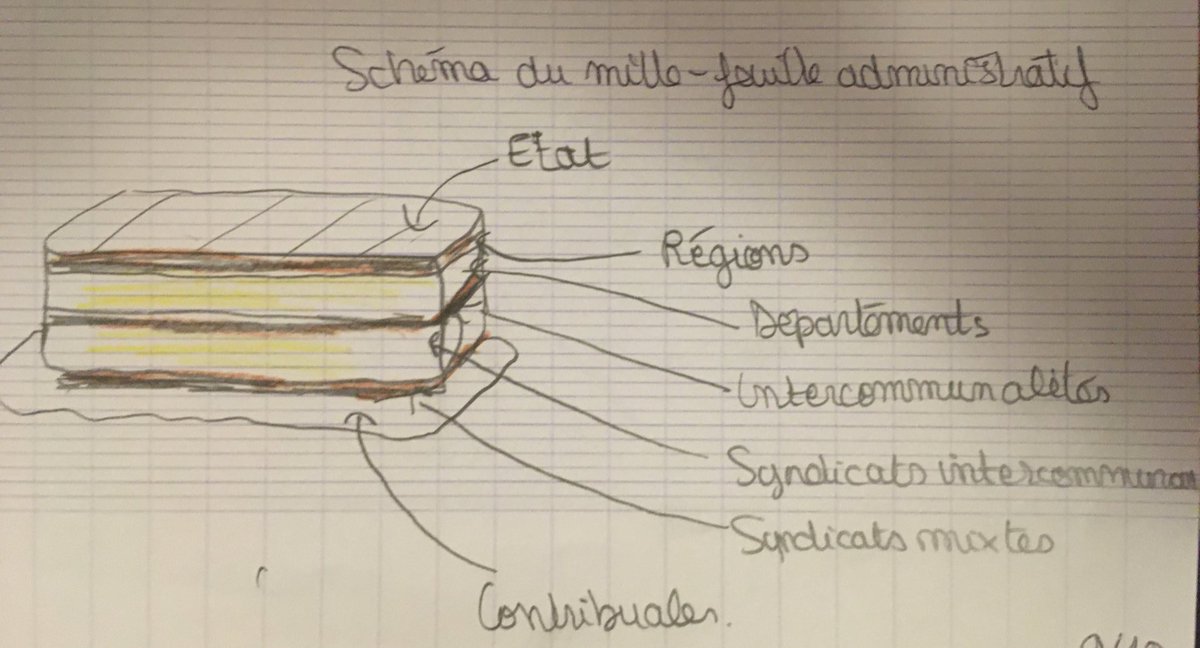 Schéma du mille-feuille administratif
Etat
Régions
Départements
Intercommunalités
Syndicats intercommunaux
Syndicats mixtes
Contribuables.